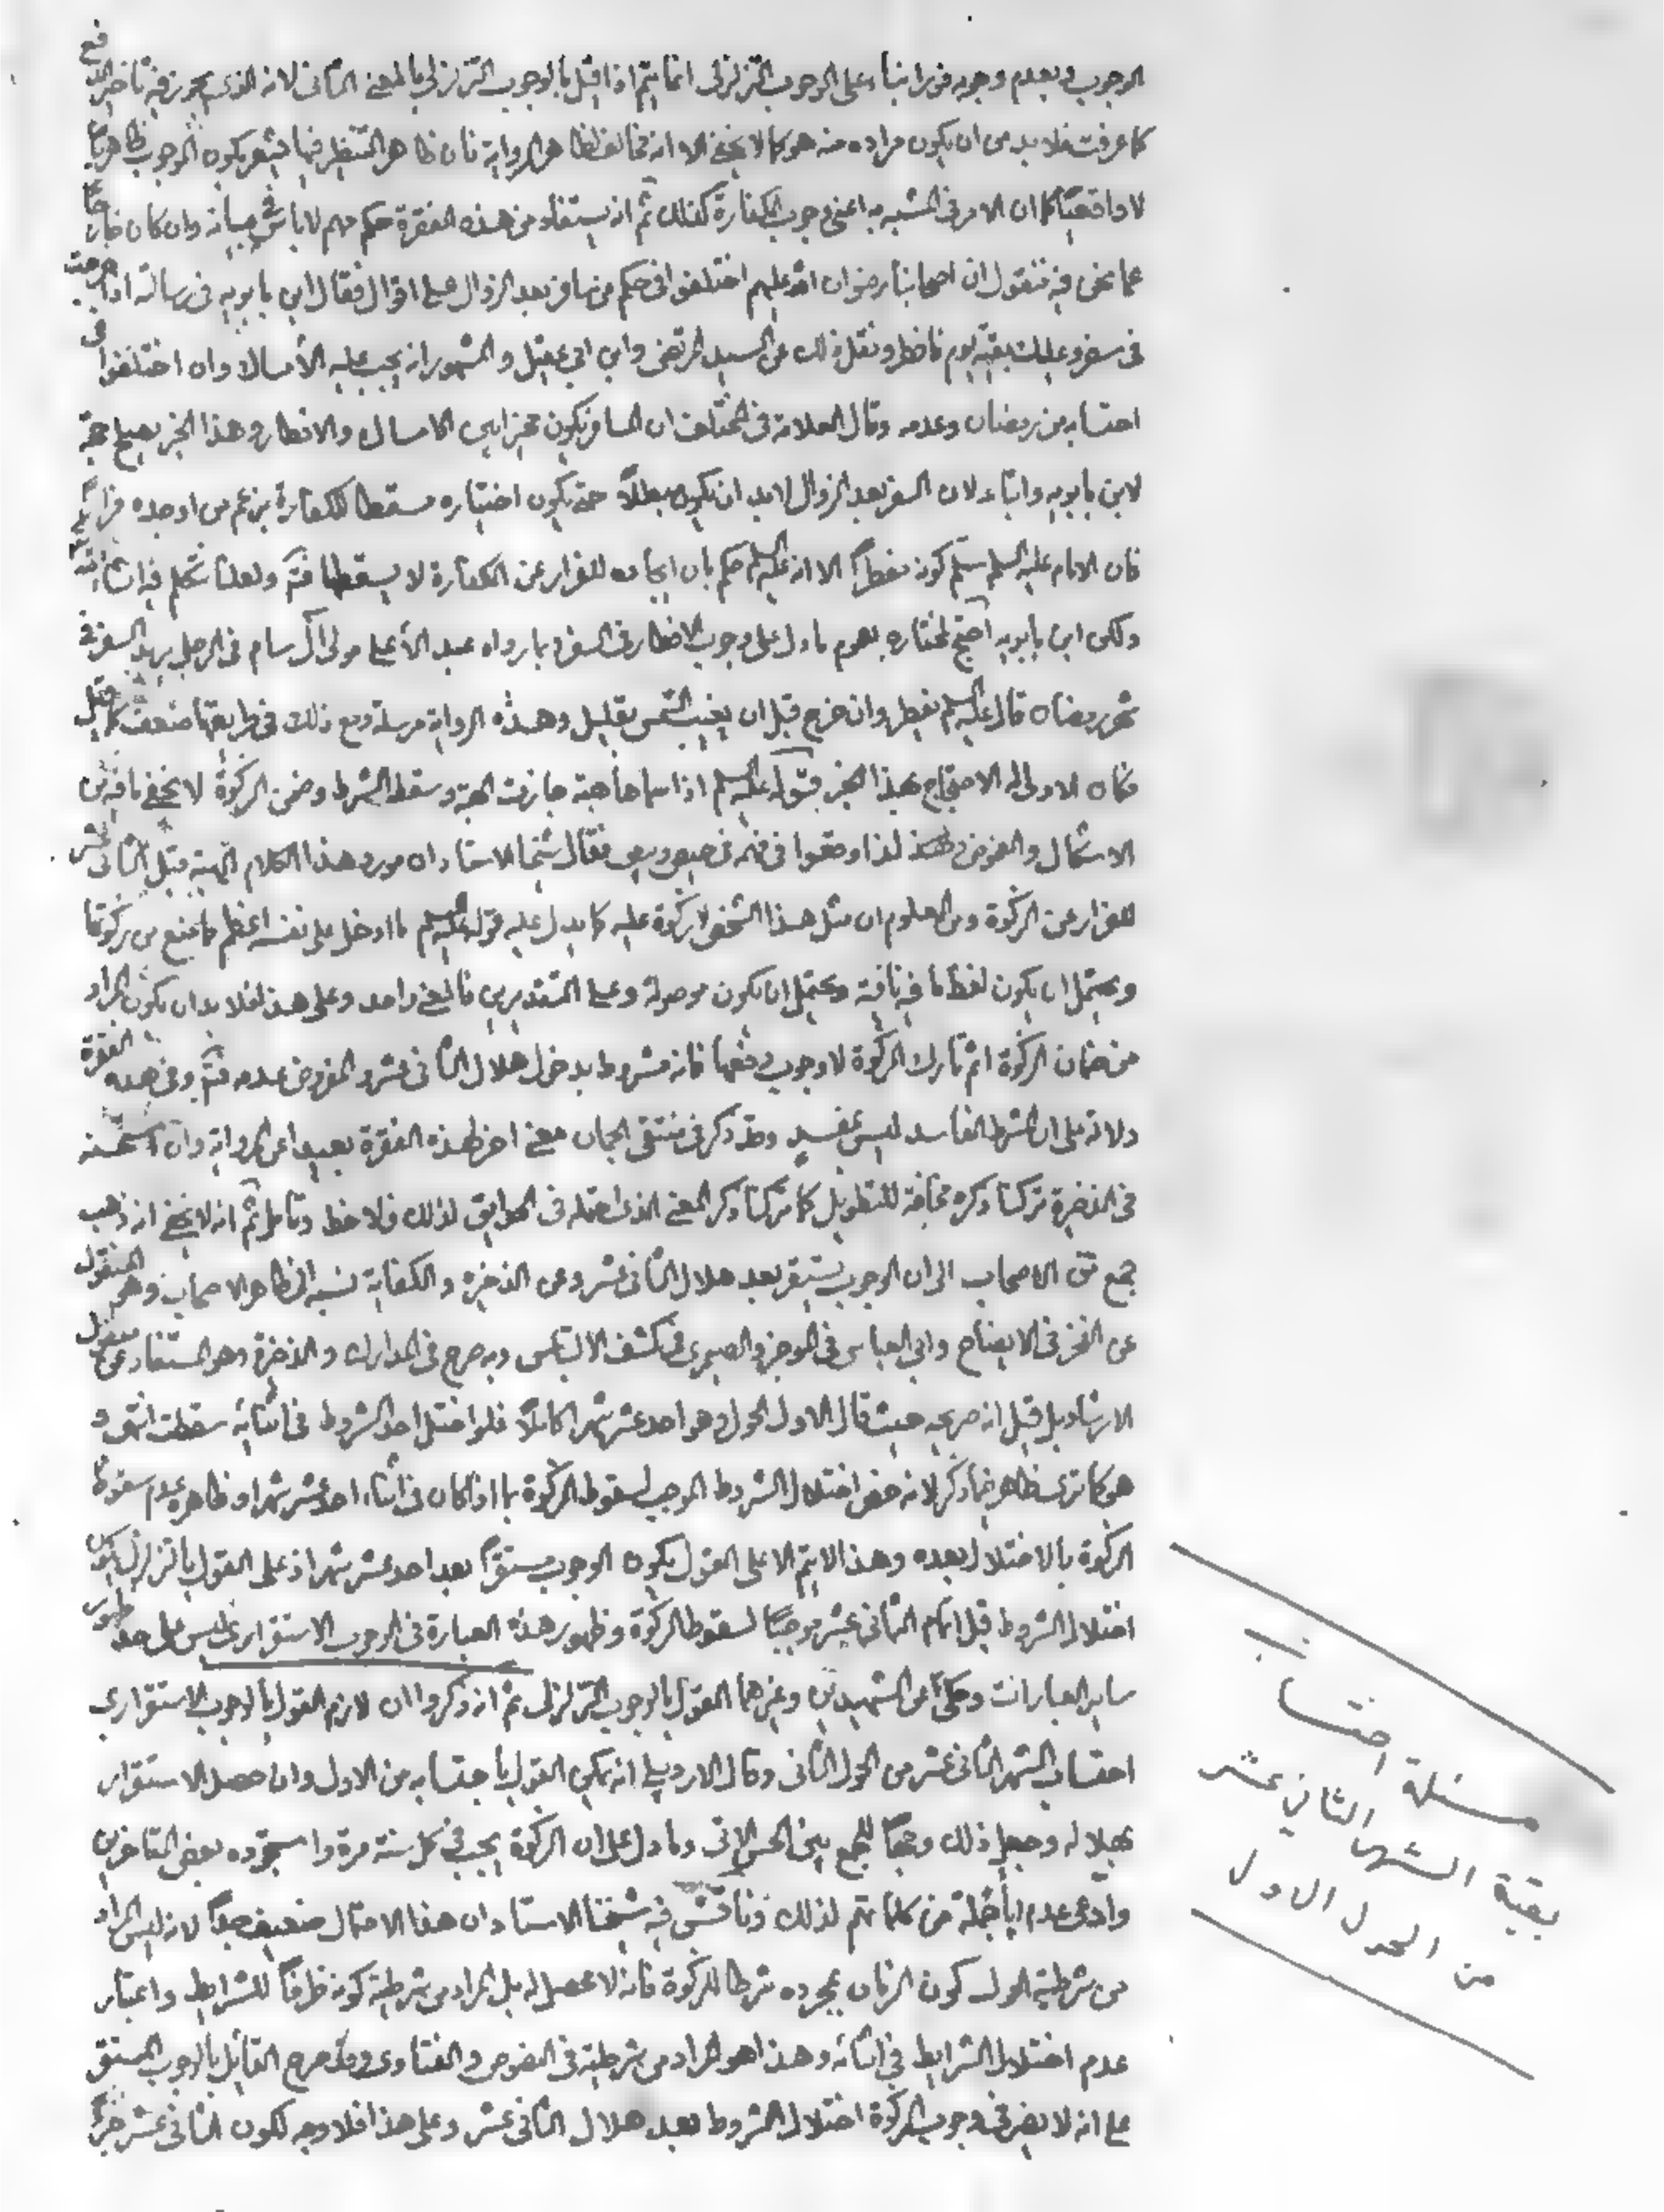 الوجوب وبعدم وجوبه فورا بناء على الوجوب التزلزلى انما يتم اذا قيل بالوجوب التزلزلي بالمعنى الثانى لانه الذى يجوز فيه تاخير الدفع
كما عرفت فلا بد من ان يكون مراده منه هو كما لا يخفى الا انه مخالف لظاهر الرواية فان ظاهر التنظير فيها يكون الوجوب ظاهريا
لا واقعيّا كما ان الامر فى المشبه به اعنى وجوب الكفارة كذلك ثم انه يستفاد من هذه الفقرة حكم مهم لا باس ببيانه وان كان خارجا
عما نحن فيه فنقول ان اصحابنا رضوان الله عليهم اختلفوا فى حكم من سافر بعد الزوال على اقوال فقال ابن بابويه فى رسالته اذا خرجت
فى سفر وعليك بقية يوم فافطر ونقل ذلك عن السيد المرتضى وابن ابي عقيل والمشهور انه يجب عليه الأمساك وان اختلفوا فى
احتسابه من رمضان وعدمه وقال العلامة فى المختلف ان المسافر يكون مخيرا بين الامساك والافطار وهذا الخبر يصلح حجة
لابن بابويه واتباعه لان السفر بعد الزوال لا بد ان يكون مبطلاً حتى يكون اختياره مسقطا للكفارة بزعم من اوجده فرارا
فان الامام عليه السلم سلم كونه مفطراً الا انه عليه السلم حكم بان ايجاده للفرار عن الكفارة لا يسقطها فتم ولعلنا نتكلم فيه انشاء الله
ولكن ابن بابويه احتج لمختاره بعموم ما دل على وجوب الافطار فى السفر وبما رواه عبد الأعلى مولى آل سام فى الرجل يريد السفر فى
شهر رمضان قال عليه السلم يفطر وان خرج قبل ان يغيب الشمس بقليل وهذه الرواية مرسلة ومع ذلك فى طريقها ضعف كما قيل
فكان الاولى له الاحتجاج بهذا الخبر قوله عليه السلم اذا سماها هبة جازت الهبة وسقط الشرط وضمن الزكوة لا يخفى ما فيه من
الاشكال والغموض ولهذا وقعوا فى فهمه فى حيص وبيص فقال شيخنا الاستاد ان مورد هذا الكلام الهبة قبل الثانى عشر
للفرار عن الزكوة ومن المعلوم ان مثل هذا الشخص لا زكوة عليه كما يدل عليه قوله عليه السلم ما ادخل على نفسه اعظم مما منع من زكوتها
ويحتمل ان يكون لفظ ما فيه نافية ويحتمل ان يكون موصولة وعلى التقديرين فالمعنى واحد وعلى هذا فلا بد ان يكون المراد
من ضمان الزكوة اثم تارك الزكوة لا وجوب دفعها فانه مشروط بدخول هلال الثانى عشر والمفروض عدمه فتم وفى هذه الفقرة
دلالة على ان الشرط الفاسد ليس بمفسد وقد ذكر فى منتقى الجمان معنى اخر لهذه الفقرة بعيدا عن الرواية وان استحسنه
فى الذخيرة تركنا ذكره مخافة للتطويل كما تركنا ذكر المعنى الذى احتمله فى الحدايق لذلك فلاحظ وتامل ثم انه لا يخفى انه ذهب
جمع من الاصحاب الى ان الوجوب يستقر بعد هلال الثانى عشر وعن الذخيره والكفاية نسبه الى ظاهر الاصحاب وهو المنقول
عن الفخر فى الايضاح وابى العباس فى الموجز والصيمرى فى كشف الالتباس وبه صرح فى المدارك والذخيرة وهو المستفاد عن
الارشاد بل قيل انه صريحه حيث قال الاول الحول وهو احد عشر شهرا كاملاً فلو اختل احد الشروط فى اثنائه سقطت انتهى و
هو كما ترى ظاهر فيما ذكر لانه خص اختلال الشروط الموجب لسقوط الزكوة بما اذا كان فى اثناء احد عشر شهرا وظاهره عدم سقوط
الزكوة بالاختلال بعده وهذا لا يتم الا على القول بكون الوجوب مستقراً بعد احد عشر شهرا اذ على القول بالتزلزل يكون
اختلال الشروط قبل اتمام الثانى عشر موجبًا لسقوط الزكوة وظهور هذه العبارة فى الوجوب الاستقرارى ليس على حد ظهور
ساير العبارات وحكى عن الشهيدين وغيرهما القول بالوجوب التزلزلى ثم انه ذكروا ان لازم القول بالوجوب الاستقرارى
احتساب الشهر الثانى عشر من الحول الثانى وقال الاردبيلى انه يمكن القول باحتسابه من الاول وان حصل الاستقرار
بهلاله وجعل ذلك وجهًا للجمع بين الحسن الاتى وما دل على ان الزكوة يجب فى كل سنة مرة واستجوده بعض المتاخرين
وادعى عدم اباء جملة من كلماتهم لذلك وناقش فيه شيخنا الاستاد ان هذا الاحتمال ضعيف جداً لانه ليس المراد
من شرطية الحول كون الزمان بمجرده شرطا للزكوة فانه لا محصل له بل المراد من شرطيته كونه ظرفاً للشرايط واعتبار
عدم اختلال الشرايط فى اثنائه وهذا هو المراد من شرطيته فى النصوص والفتاوى وقد صرح القائل بالوجوب المستقر
على انه لا يضر فى وجوب الزكوة اختلال الشروط بعد هلال الثانى عشر وعلى هذا فلا وجه لكون الثانى عشر جزءاً
مسئلة احتساب
بقية الشهر الثاني عشر
من الحول الاول